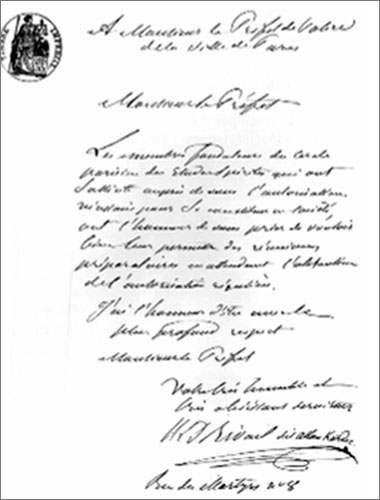 A Monsieur le Préfet de Police
de la ville de Paris
Monsieur le Préfet
Les membres fondateurs du cercle
parisien des Etudes spirites qui ont
sollicité auprès de vous l'autorisation
nécessaire pour se constituer en société,
ont l'honneur de vous prier de vouloir
bien leur permettre des réunions
préparatoires en attendant l'obtention
de l'autorisation régulière.
J'ai l'honneur d'être avec le
plus profond respect
Monsieur le Préfet
Votre très humble et
très obéissant serviteur
H.L.D. Rivail dit Allan Kardec
Rue des Martyrs n° 8